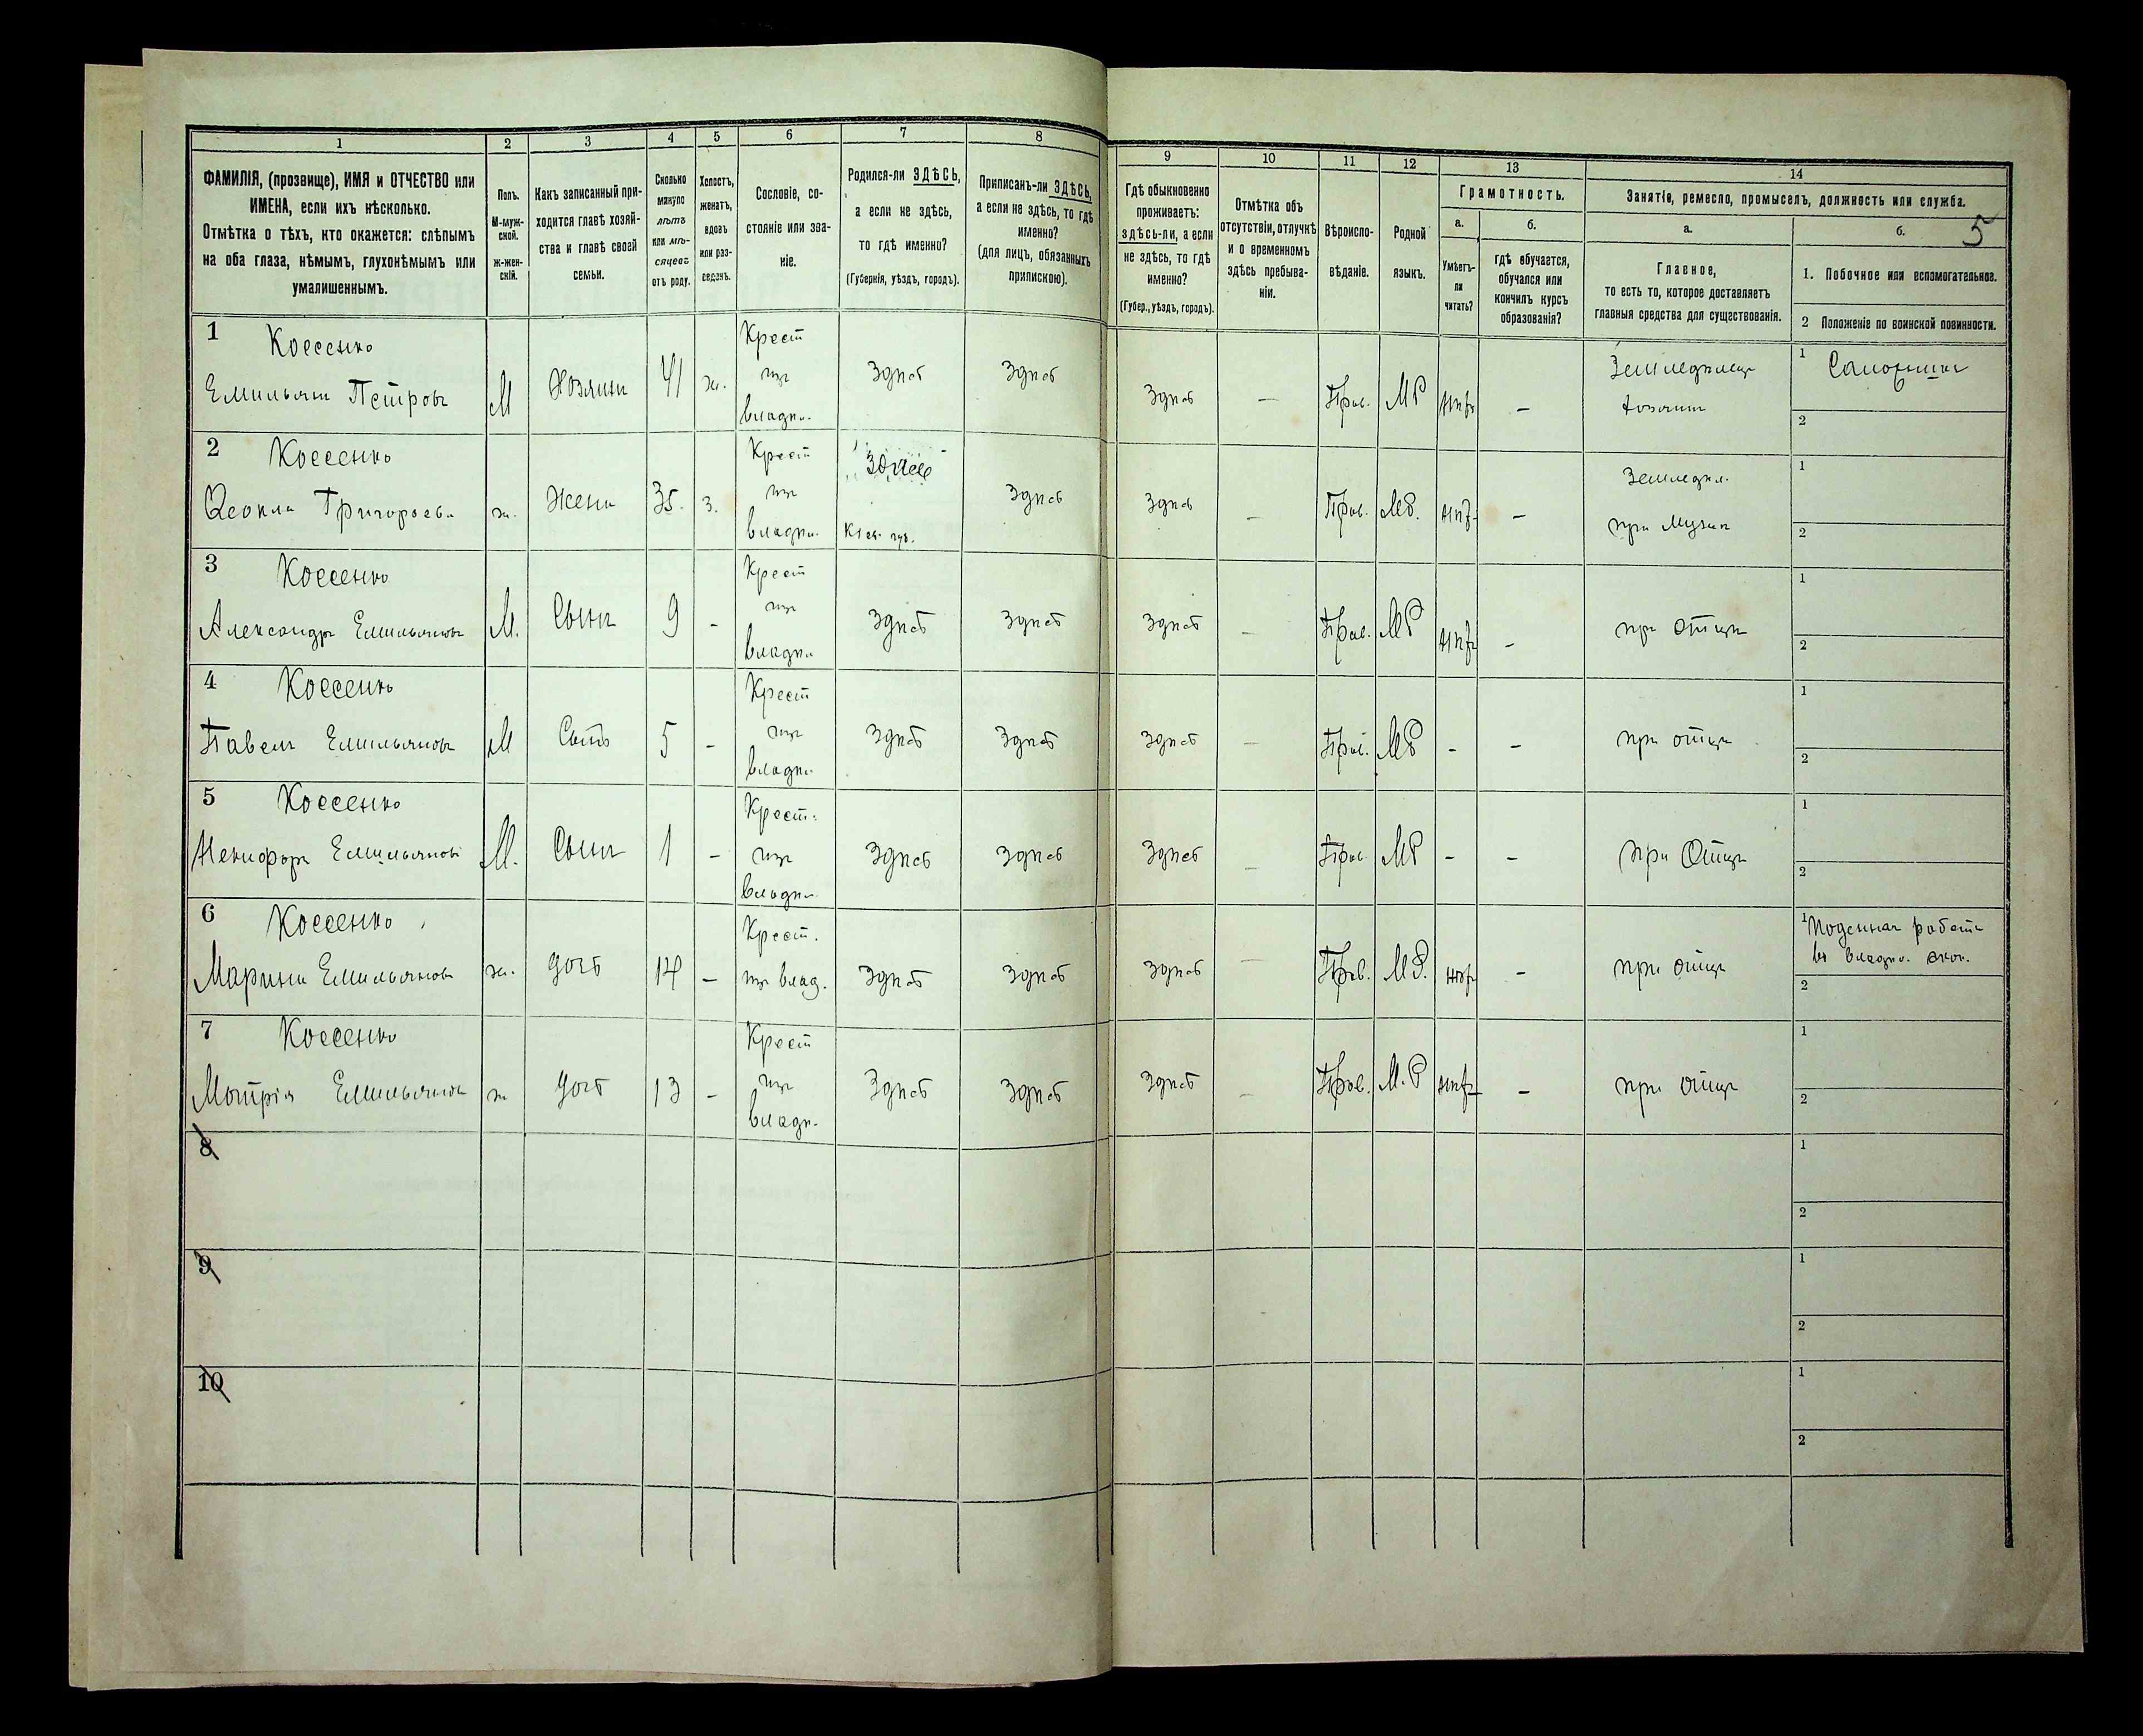 1 2 3 4 5 6 7 8 9 10 11 12 13 14
ФАМИЛІЯ, (прозвище), ИМЯ и ОТЧЕСТВО или
ИМЕНА, если ихъ нѣсколько.
Отмѣтка о тѣхъ, кто окажется: слѣпымъ
на оба глаза, нѣмымъ, глухонѣмымъ или
умалишеннымъ.
Полъ.
М-муж-
ской.
ж-жен-
скій.
Какъ записанный при-
ходится главѣ хозяй-
ства и главѣ своей
семьи.
Сколько
минуло
лѣтъ
или мѣ-
сяцевъ
отъ роду.
Холостъ,
женатъ,
вдовъ
или раз-
веденъ.
Сословіе, со-
стояніе или зва-
ніе.
Родился-ли ЗДѢСЬ,
а если не здѣсь,
то гдѣ именно?
(Губернія, уѣздъ, городъ).
Приписанъ-ли ЗДѢСЬ,
а если не здѣсь, то гдѣ
именно?
(для лицъ, обязанныхъ
припискою).
Гдѣ обыкновенно
проживаетъ:
здѣсь-ли, а если
не здѣсь, то гдѣ
именно?
(Губер., уѣздъ, городъ).
Отмѣтка объ
отсутствіи, отлучкѣ
и о временномъ
здѣсь пребыва-
ніи.
Вѣроиспо-
вѣданіе.
Родной
языкъ.
Грамотность.
а.
Умѣетъ-
ли
читать?
б.
гдѣ обучается,
обучался или
кончилъ курсъ
образованія?
Занятіе, ремесло, промыселъ, должность или служба.
а.
Главное,
то есть то, которое доставляетъ
главныя средства для существованія.
б. 5
1. Побочное или вспомогательное.
2 Положеніе по воинской повинности.
1 Коссенко
Емильянъ Петровъ М Хозяинъ 41 ж.
Крест
изъ
владѣ.
здѣсь здѣсь здѣсь — Прав. МР нѣтъ —
Земледѣлецъ
хозяинъ
1
2
2 Коссенко
Ѳеокла Григорьев. ж. Жена 35. з.
Крест
изъ
владѣ.
Кіев. губ.
здѣсь здѣсь — Прав. МР. нѣт —
Земледѣл.
при мужѣ
1
2
3 Коссенко
Александръ Емильяновъ М. Сынъ 9 -
Крест
изъ
владѣ
здѣсь здѣсь здѣсь — Прав. МР нѣтъ - при отцѣ
1
2
4 Коссенко
Павелъ Емильяновъ М Сынъ 5 -
Крест
изъ
владѣ
здѣсь здѣсь здѣсь — Прав. МР - - при отцѣ
1
2
5 Коссенко
Некифоръ Емильянов М. Сынъ 1 -
Крест.
изъ
владѣ
здѣсь здѣсь здѣсь — Прав МР - - при Отцѣ
1
2
6 Коссенко
Марина Емильянова ж. дочь 14 -
Крест.
изъ влад.
здѣсь здѣсь здѣсь — Прав. МР. нѣт - при отцѣ
1 Поденная работа
въ владѣ. экон.
2
7 Коссенко
Мотрія Емильянов ж дочь 13 -
Крест
изъ
владѣ.
Здѣсь здѣсь здѣсь — Прав. М.Р нѣт - при отцѣ
1
2
8
1
2
9
1
2
10
1
2